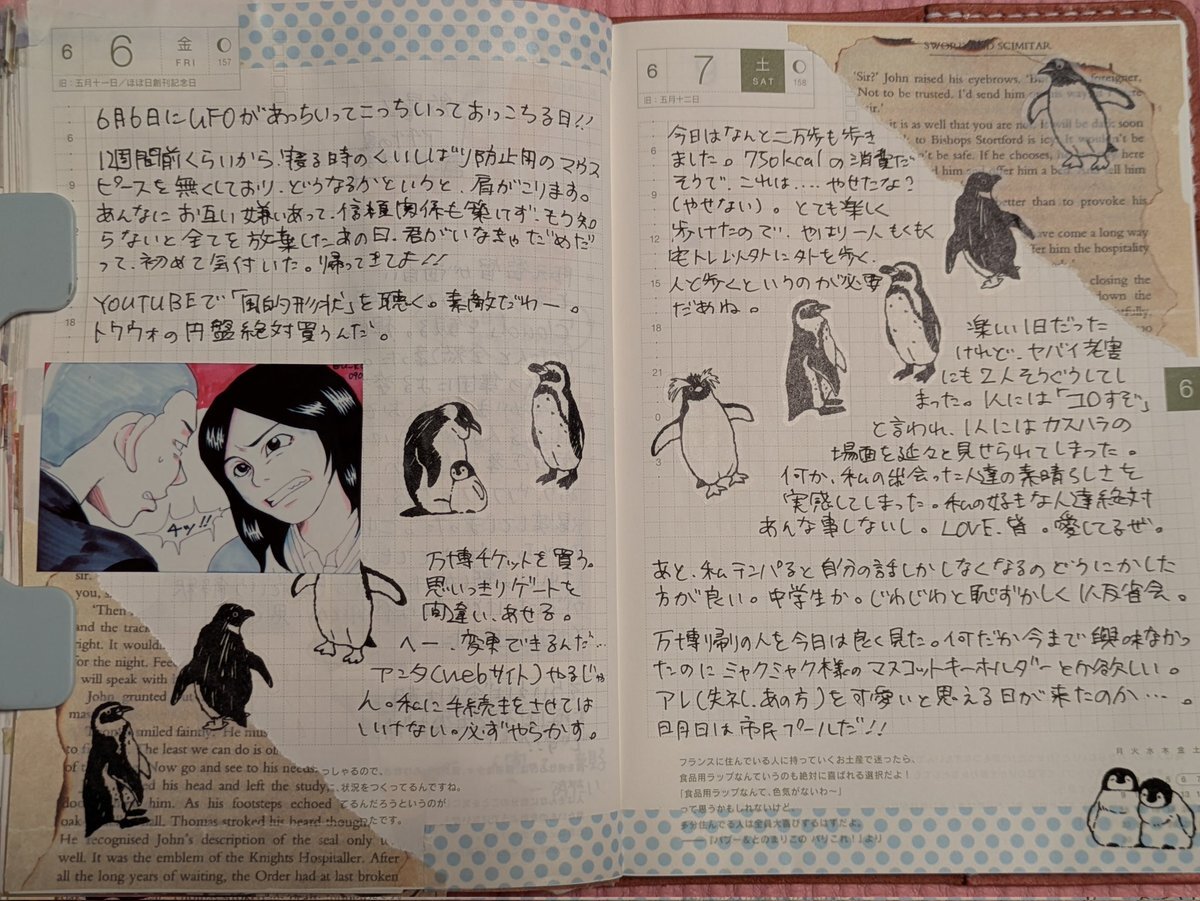 6
6
金
FRI
157
旧：五月十一日／ほぼ日創刊記念日
6月6日にUFOがあっちいってこっちいっておっこちる日!!
12週間前くらいから、寝る時のくいしばり防止用のマウス
ピースを無くしており、どうなるかというと、肩がこります。
あんなにお互い嫌いあって、信頼関係も築けず、そう知
らないと全てを放棄したあの日、君がいなきゃだめだ
って、初めて気付いた。帰ってきてよ!!
YOUTUBEで「風的形状」を聴く。素敵だわー。
トウウォの円盤絶対買うんだ。
チッ!!
万博チケットを買う。
思いっきりゲートを
間違い、あせる。
へー、変更できるんだ…
アンタ(webサイト)やるじゃ
ん。私に手続きをさせては
いけない。必ずやらかす。
sir.
you, s
'Then
and the track
right. It would
for the night. Feel
will speak with
John grunted
smiled faintly. He mus
The least we can do is of
Now go and see to his needs
his head and left the study
him. As his footsteps echoed
oak Thomas stroked his beard though
He recognised John's description of the seal only to
well. It was the emblem of the Knights Hospitaller. After
all the long years of waiting, the Order had at last broken
っしゃるので、
、状況をつくってるんですね。
てるんだろうというのが
たです。
6
7
土
SAT
158
旧：五月十二日
今日はなんと二万歩も歩き
ました。750kcalの消費だ
そうで、これは....やせたな？
(やせない)。とても楽しく
歩けたので、やはり一人もくもく
宅トレ以外に外を歩く、
人と歩くというのが必要
だあね。
SWORD AND SCIMITAR
'Sir?' John raised his eyebrows. foreigner.
Not to be trusted. I'd send him
sir.'
it is as well that you are not. It will be dark soon
to Bishops Stortford is icy. It wouldn't be
n't be safe. If he chooses, here
him and offer him a bed tell him
better than to provoke his
have come a long way
offer him the hospitality
closing the
down the
楽しい1日だった
けれど、ヤバイ老害
にも2人そうぐうしてし
まった。1人には「コロすぞ」
と言われ、1人にはカスハラの
場面を延々と見せられてしまった。
何か、私の出会った人達の素晴らしさを
実感してしまった。私の好きな人達絶対
あんな事しないし。LOVE、皆。愛してるぜ。
6
あと、私テンパると自分の話しかしなくなるのどうにかした
方が良い。中学生か。じわじわと恥ずかしく1人反省会。
万博帰りの人を今日は良く見た。何だか今まで興味なかっ
たのにミャクミャク様のマスコットキーホルダーとか欲しい。
アレ(失礼、あの方)を可愛いと思える日が来たのか…。
日月日は市民プールだ!!
フランスに住んでいる人に持っていくお土産で迷ったら、
食品用ラップなんていうのも絶対に喜ばれる選択だよ！
「食品用ラップなんて、色気がないわ〜」
って思うかもしれないけど、
多分住んでる人は全員大喜びするはずだよ。
――『バブー＆とのまりこの パリこれ！』より
月 火 水 木 金 土